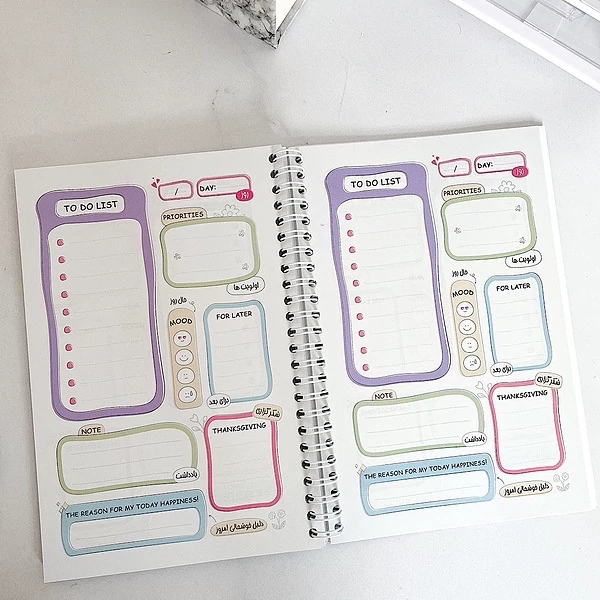 /
DAY:
روز
TO DO LIST
PRIORITIES
اولویت ها
حال روز
MOOD
FOR LATER
برای بعد
شکرگزاری
NOTE
THANKSGIVING
یادداشت
THE REASON FOR MY TODAY HAPPINESS!
دلیل خوشحالی امروز
/
DAY:
روز
TO DO LIST
PRIORITIES
اولویت ها
حال روز
MOOD
FOR LATER
برای بعد
شکرگزاری
NOTE
THANKSGIVING
یادداشت
THE REASON FOR MY TODAY HAPPINESS!
دلیل خوشحالی امروز